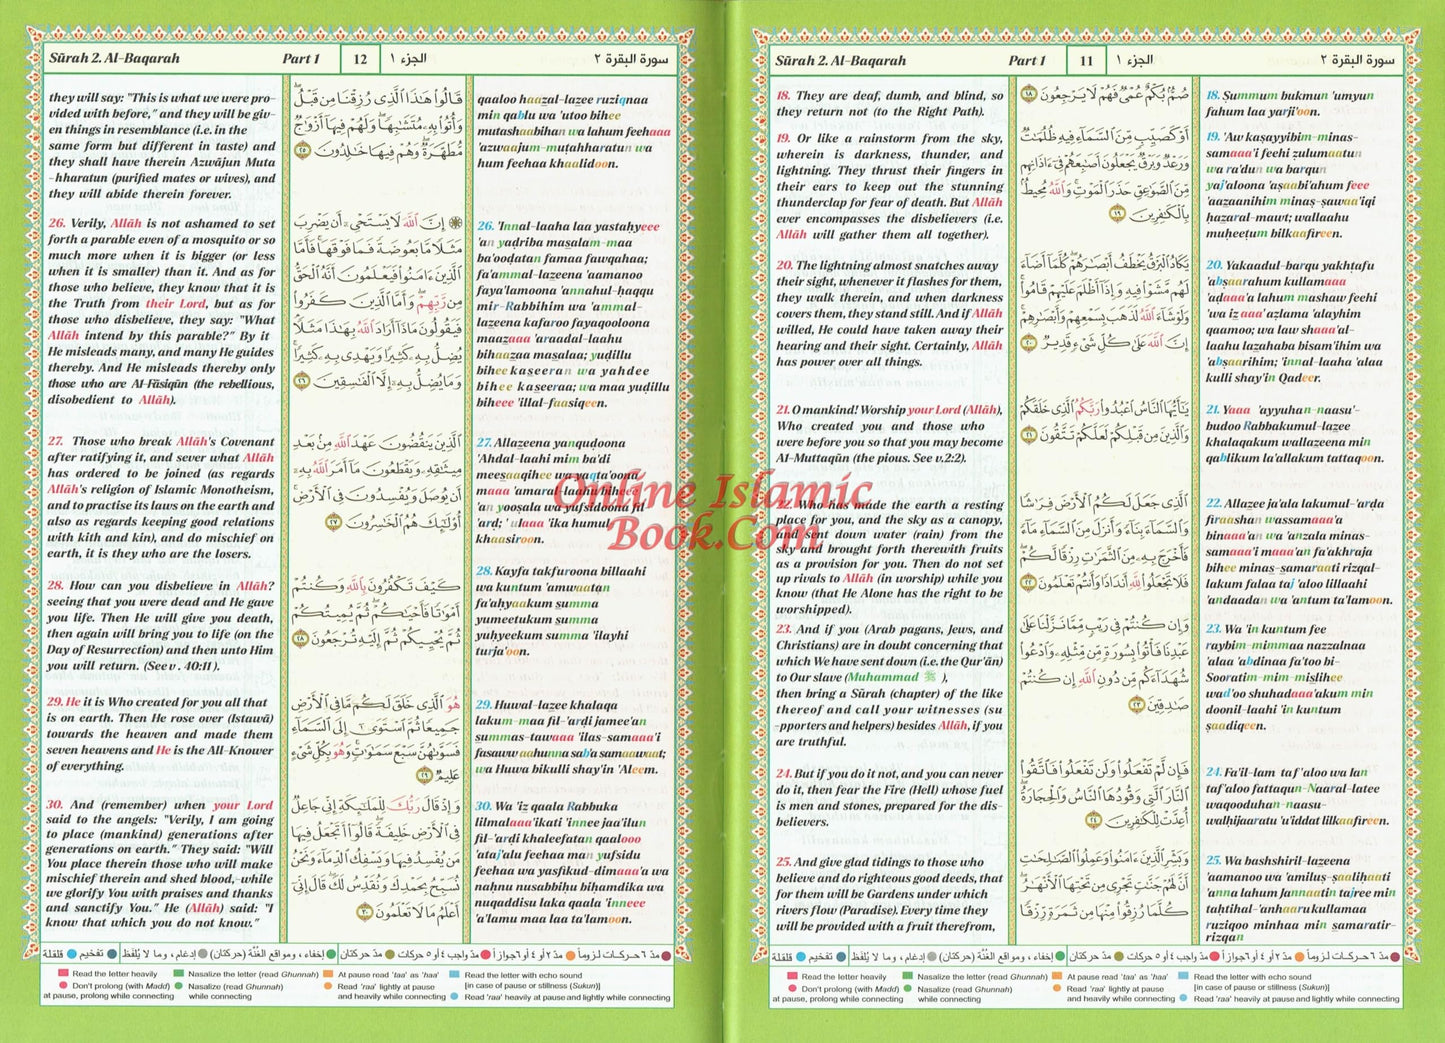 Sūrah 2. Al-Baqarah
Part 1
11
الجزء ١
سورة البقرة ٢
18. They are deaf, dumb, and blind, so
they return not (to the Right Path).
19. Or like a rainstorm from the sky,
wherein is darkness, thunder, and
lightning. They thrust their fingers in
their ears to keep out the stunning
thunderclap for fear of death. But Allāh
ever encompasses the disbelievers (i.e.
Allāh will gather them all together).
20. The lightning almost snatches away
their sight, whenever it flashes for them,
they walk therein, and when darkness
covers them, they stand still. And if Allāh
willed, He could have taken away their
hearing and their sight. Certainly, Allāh
has power over all things.
21. O mankind! Worship your Lord (Allāh),
Who created you and those who
were before you so that you may become
Al-Muttaqūn (the pious. See v.2:2).
22. Who has made the earth a resting
place for you, and the sky as a canopy,
and sent down water (rain) from the
sky and brought forth therewith fruits
as a provision for you. Then do not set
up rivals to Allāh (in worship) while you
know (that He Alone has the right to be
worshipped).
23. And if you (Arab pagans, Jews, and
Christians) are in doubt concerning that
which We have sent down (i.e. the Qur'ān)
to Our slave (Muhammad ﷺ ),
then bring a Sūrah (chapter) of the like
thereof and call your witnesses (su
-pporters and helpers) besides Allāh, if you
are truthful.
24. But if you do it not, and you can never
do it, then fear the Fire (Hell) whose fuel
is men and stones, prepared for the dis-
believers.
25. And give glad tidings to those who
believe and do righteous good deeds, that
for them will be Gardens under which
rivers flow (Paradise). Every time they
will be provided with a fruit therefrom,
صُمٌّ بُكْمٌ عُمْىٌ فَهُمْ لَا يَرْجِعُونَ ١٨
أَوْ كَصَيِّبٍ مِّنَ ٱلسَّمَآءِ فِيهِ ظُلُمَٰتٌ
وَرَعْدٌ وَبَرْقٌ يَجْعَلُونَ أَصَٰبِعَهُمْ فِىٓ ءَاذَانِهِم
مِّنَ ٱلصَّوَٰعِقِ حَذَرَ ٱلْمَوْتِ وَٱللَّهُ مُحِيطٌۢ
بِٱلْكَٰفِرِينَ ١٩
يَكَادُ ٱلْبَرْقُ يَخْطَفُ أَبْصَٰرَهُمْ كُلَّمَآ أَضَآءَ
لَهُم مَّشَوْا۟ فِيهِ وَإِذَآ أَظْلَمَ عَلَيْهِمْ قَامُوا۟
وَلَوْ شَآءَ ٱللَّهُ لَذَهَبَ بِسَمْعِهِمْ وَأَبْصَٰرِهِمْ
إِنَّ ٱللَّهَ عَلَىٰ كُلِّ شَىْءٍ قَدِيرٌ ٢٠
يَٰٓأَيُّهَا ٱلنَّاسُ ٱعْبُدُوا۟ رَبَّكُمُ ٱلَّذِى خَلَقَكُمْ
وَٱلَّذِينَ مِن قَبْلِكُمْ لَعَلَّكُمْ تَتَّقُونَ ٢١
ٱلَّذِى جَعَلَ لَكُمُ ٱلْأَرْضَ فِرَٰشًا
وَٱلسَّمَآءَ بِنَآءً وَأَنزَلَ مِنَ ٱلسَّمَآءِ مَآءً
فَأَخْرَجَ بِهِۦ مِنَ ٱلثَّمَرَٰتِ رِزْقًا لَّكُمْ
فَلَا تَجْعَلُوا۟ لِلَّهِ أَندَادًا وَأَنتُمْ تَعْلَمُونَ ٢٢
وَإِن كُنتُمْ فِى رَيْبٍ مِّمَّا نَزَّلْنَا عَلَىٰ
عَبْدِنَا فَأْتُوا۟ بِسُورَةٍ مِّن مِّثْلِهِۦ وَٱدْعُوا۟
شُهَدَآءَكُم مِّن دُونِ ٱللَّهِ إِن كُنتُمْ
صَٰدِقِينَ ٢٣
فَإِن لَّمْ تَفْعَلُوا۟ وَلَن تَفْعَلُوا۟ فَٱتَّقُوا۟
ٱلنَّارَ ٱلَّتِى وَقُودُهَا ٱلنَّاسُ وَٱلْحِجَارَةُ
أُعِدَّتْ لِلْكَٰفِرِينَ ٢٤
وَبَشِّرِ ٱلَّذِينَ ءَامَنُوا۟ وَعَمِلُوا۟ ٱلصَّٰلِحَٰتِ
أَنَّ لَهُمْ جَنَّٰتٍ تَجْرِى مِن تَحْتِهَا ٱلْأَنْهَٰرُ
كُلَّمَا رُزِقُوا۟ مِنْهَا مِن ثَمَرَةٍ رِّزْقًا
18. Ṣummum bukmun 'umyun
fahum laa yarji'oon.
19. 'Aw kaṣayyibim-minas-
samaaa'i feehi ẓulumaatun
wa ra'dun wa barqun
yaj'aloona 'aṣaabi'ahum feee
'aaẕaanihim minaṣ-ṣawaa'iqi
ḥaẕaral-mawt; wallaahu
muḥeeṭum bilkaafireen.
20. Yakaadul-barqu yakhṭafu
'abṣaarahum kullamaaa
'aḍaaa'a lahum mashaw feehi
'wa iẕaaa' aẓlama 'alayhim
qaamoo; wa law shaaa'al-
laahu laẕahaba bisam'ihim wa
'abṣaarihim; 'innal-laaha 'alaa
kulli shay'in Qadeer.
21. Yaaa 'ayyuhan-naasu'-
budoo Rabbakumul-laẕee
khalaqakum wallaẕeena min
qablikum la'allakum tattaqoon.
22. Allaẕee ja'ala lakumul-'arḍa
firaashan wassamaaa'a
binaaa'an wa 'anzala minas-
samaaa'i maaa'an fa'akhraja
bihee minaṣ-ṣamaraati rizqal-
lakum falaa taj 'aloo lillaahi
'andaadan wa 'antum ta'lamoon.
23. Wa 'in kuntum fee
raybim-mimmaa nazzalnaa
'alaa 'abdinaa fa'too bi-
Sooratim-mim-mislihee
wad'oo shuhadaaa'akum min
doonil-laahi 'in kuntum
ṣaadiqeen.
24. Fa'il-lam taf'aloo wa lan
taf'aloo fattaqun-Naaral-latee
waqooduhan-naasu-
walḥijaaratu 'u'iddat lilkaafireen.
25. Wa bashshiril-laẕeena
'aamanoo wa 'amiluṣ-ṣaaliḥaati
'anna lahum Jannaatin tajree min
taḥtihal-'anhaaru kullamaa
ruziqoo minhaa min samaratir-
rizqan
مدّ ٦ حركـات لـزوماً مدّ ٢ أو ٤ أو ٦ جوازاً مدّ واجب ٤ أو ٥ حركات مدّ حركتان إخفاء، ومواقع الغُنَّة (حركتان) إدغام، وما لا يُلفَظ تفخيم قلقلة
Read the letter heavily
Don't prolong (with Madd)
at pause, prolong while connecting
Nasalize the letter (read Ghunnah)
Nasalize (read Ghunnah)
while connecting
At pause read 'taa' as 'haa'
Read 'raa' lightly at pause
and heavily while connecting
Read the letter with echo sound
[in case of pause or stillness (Sukun)]
Read 'raa' heavily at pause and lightly while connecting
Sūrah 2. Al-Baqarah
Part 1
12
الجزء ١
سورة البقرة ٢
they will say: "This is what we were pro-
vided with before," and they will be giv-
en things in resemblance (i.e. in the
same form but different in taste) and
they shall have therein Azwājun Muta
-hharatun (purified mates or wives), and
they will abide therein forever.
26. Verily, Allāh is not ashamed to set
forth a parable even of a mosquito or so
much more when it is bigger (or less
when it is smaller) than it. And as for
those who believe, they know that it is
the Truth from their Lord, but as for
those who disbelieve, they say: "What
Allāh intend by this parable?" By it
He misleads many, and many He guides
thereby. And He misleads thereby only
those who are Al-Fāsiqūn (the rebellious,
disobedient to Allāh).
27. Those who break Allāh's Covenant
after ratifying it, and sever what Allāh
has ordered to be joined (as regards
Allāh's religion of Islamic Monotheism,
and to practise its laws on the earth and
also as regards keeping good relations
with kith and kin), and do mischief on
earth, it is they who are the losers.
28. How can you disbelieve in Allāh?
seeing that you were dead and He gave
you life. Then He will give you death,
then again will bring you to life (on the
Day of Resurrection) and then unto Him
you will return. (See v . 40:11 ).
29. He it is Who created for you all that
is on earth. Then He rose over (Istawā)
towards the heaven and made them
seven heavens and He is the All-Knower
of everything.
30. And (remember) when your Lord
said to the angels: "Verily, I am going
to place (mankind) generations after
generations on earth." They said: "Will
You place therein those who will make
mischief therein and shed blood,-while
we glorify You with praises and thanks
and sanctify You." He (Allāh) said: "I
know that which you do not know."
قَالُوا۟ هَٰذَا ٱلَّذِى رُزِقْنَا مِن قَبْلُ
وَأُتُوا۟ بِهِۦ مُتَشَٰبِهًا وَلَهُمْ فِيهَآ أَزْوَٰجٌ
مُّطَهَّرَةٌ وَهُمْ فِيهَا خَٰلِدُونَ ٢٥
إِنَّ ٱللَّهَ لَا يَسْتَحْىِۦٓ أَن يَضْرِبَ
مَثَلًا مَّا بَعُوضَةً فَمَا فَوْقَهَا فَأَمَّا
ٱلَّذِينَ ءَامَنُوا۟ فَيَعْلَمُونَ أَنَّهُ ٱلْحَقُّ
مِن رَّبِّهِمْ وَأَمَّا ٱلَّذِينَ كَفَرُوا۟
فَيَقُولُونَ مَاذَآ أَرَادَ ٱللَّهُ بِهَٰذَا مَثَلًا
يُضِلُّ بِهِۦ كَثِيرًا وَيَهْدِى بِهِۦ كَثِيرًا
وَمَا يُضِلُّ بِهِۦٓ إِلَّا ٱلْفَٰسِقِينَ ٢٦
ٱلَّذِينَ يَنقُضُونَ عَهْدَ ٱللَّهِ مِنۢ بَعْدِ
مِيثَٰقِهِۦ وَيَقْطَعُونَ مَآ أَمَرَ ٱللَّهُ بِهِۦٓ
أَن يُوصَلَ وَيُفْسِدُونَ فِى ٱلْأَرْضِ
أُو۟لَٰٓئِكَ هُمُ ٱلْخَٰسِرُونَ ٢٧
كَيْفَ تَكْفُرُونَ بِٱللَّهِ وَكُنتُمْ
أَمْوَٰتًا فَأَحْيَٰكُمْ ثُمَّ يُمِيتُكُمْ
ثُمَّ يُحْيِيكُمْ ثُمَّ إِلَيْهِ تُرْجَعُونَ ٢٨
هُوَ ٱلَّذِى خَلَقَ لَكُم مَّا فِى ٱلْأَرْضِ
جَمِيعًا ثُمَّ ٱسْتَوَىٰٓ إِلَى ٱلسَّمَآءِ
فَسَوَّىٰهُنَّ سَبْعَ سَمَٰوَٰتٍ وَهُوَ بِكُلِّ شَىْءٍ
عَلِيمٌ ٢٩
وَإِذْ قَالَ رَبُّكَ لِلْمَلَٰٓئِكَةِ إِنِّى جَاعِلٌ
فِى ٱلْأَرْضِ خَلِيفَةً قَالُوٓا۟ أَتَجْعَلُ فِيهَا
مَن يُفْسِدُ فِيهَا وَيَسْفِكُ ٱلدِّمَآءَ وَنَحْنُ
نُسَبِّحُ بِحَمْدِكَ وَنُقَدِّسُ لَكَ قَالَ إِنِّىٓ
أَعْلَمُ مَا لَا تَعْلَمُونَ ٣٠
qaaloo haaẕal-laẕee ruziqnaa
min qablu wa 'utoo bihee
mutashaabihan wa lahum feehaaa
'azwaajum-muṭahharatun wa
hum feehaa khaalidoon.
26. 'Innal-laaha laa yastaḥyeee
'an yaḍriba maṣalam-maa
ba'ooḍatan famaa fawqahaa;
fa'ammal-laẕeena 'aamanoo
faya'lamoona 'annahul-ḥaqqu
mir-Rabbihim wa 'ammal-
laẕeena kafaroo fayaqooloona
maaẕaaa 'araadal-laahu
bihaaẕaa maṣalaa; yuḍillu
bihee kaseeran wa yahdee
bihee kaṣeeraa; wa maa yuḍillu
biheee 'illal-faasiqeen.
27. Allaẕeena yanquḍoona
'Ahdal-laahi mim ba'di
meesaaqihee wa yaqṭa'oona
maaa 'amaral-laahu biheee
'an yooṣala wa yufsidoona fil
'arḍ; 'ulaaa 'ika humul-
khaasiroon.
28. Kayfa takfuroona billaahi
wa kuntum 'amwaatan
fa'aḥyaakum ṣumma
yumeetukum ṣumma
yuḥyeekum summa 'ilayhi
turja'oon.
29. Huwal-laẕee khalaqa
lakum-maa fil-'arḍi jamee'an
ṣummas-tawaaa 'ilas-samaaa'i
fasawwaahunna sab'a samaawaat;
wa Huwa bikulli shay'in 'Aleem.
30. Wa 'iẕ qaala Rabbuka
lilmalaaa'ikati 'innee jaa'ilun
fil-'arḍi khaleefatan qaalooo
'ataj'alu feehaa man yufsidu
feehaa wa yasfikud-dimaaa'a wa
naḥnu nusabbiḥu biḥamdika wa
nuqaddisu laka qaala 'inneee
'a'lamu maa laa ta'lamoon.
مدّ ٦ حركـات لـزوماً مدّ ٢ أو ٤ أو ٦ جوازاً مدّ واجب ٤ أو ٥ حركات مدّ حركتان إخفاء، ومواقع الغُنَّة (حركتان) إدغام، وما لا يُلفَظ تفخيم قلقلة
Read the letter heavily
Don't prolong (with Madd)
at pause, prolong while connecting
Nasalize the letter (read Ghunnah)
Nasalize (read Ghunnah)
while connecting
At pause read 'taa' as 'haa'
Read 'raa' lightly at pause
and heavily while connecting
Read the letter with echo sound
[in case of pause or stillness (Sukun)]
Read 'raa' heavily at pause and lightly while connecting
Online Islamic
Book.Com